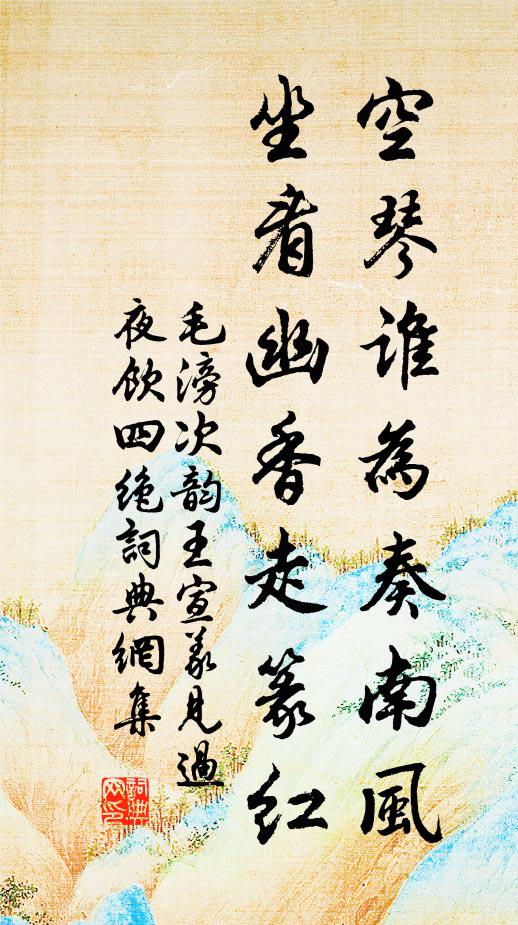 空琴誰為奏南風
坐看幽香走篆紅
毛滂次韵王宣義見過
夜飲四絶詞典網集
詞典網印